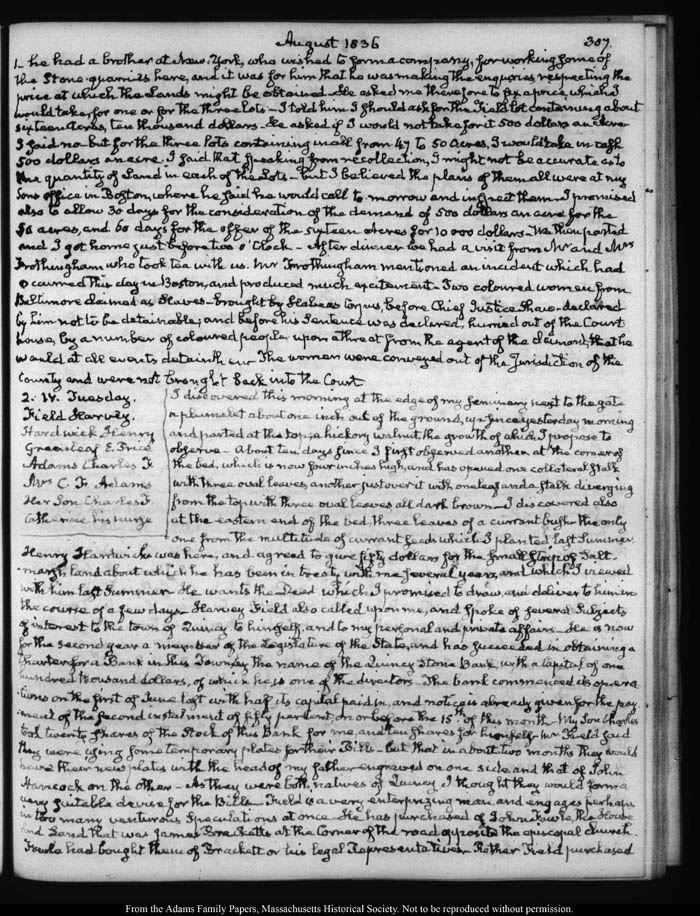 August 1836 307.
1— he had a brother at New-York, who wished to form a company, for working some of
the Stone-quarries here, and it was for him that he was making the enquiries respecting the
price at which the Lands might be obtained— He asked me therefore to fix a price, which I
would take for one or for the three lots— I told him I should ask for the Field lot containing about
sixteen Acres, ten thousand dollars— He asked if I would not take for it 500 dollars an acre
I said no— but for the three lots containing in all from 47 to 50 Acres, I would take in cash
500 dollars an acre. I said that speaking from recollection, I might not be accurate as to
the quantity of Land in each of the Lots— but I believed the plans of them all were at my
Sons office in Boston, where he said he would call to morrow and inspect them— I promised
also to allow 30 days for the consideration of the demand of 500 dollars an acre for the
50 acres, and 60 days for the offer of the sixteen Acres for 10 000 dollars— We then parted
and I got home just before two O'Clock— After dinner we had a visit from Mr and Mrs
Frothingham who took tea with us. Mr Frothingham mentioned an incident which had
occurred this day in Boston, and produced much excitement— Two coloured women from
Baltimore claimed as Slaves— brought by Habeas Corpus before Chief Justice Shaw— declared
by him not to be detainable; and before his Sentence was declared, hurried out of the Court
house, by a number of coloured people, upon a threat from the agent of the claimant, that he
would at all events detain them— The women were conveyed out of the Jurisdiction of the
County and were not brought back into the Court
2. IV. Tuesday.
Field Harvey.
Hardwick Henry
Greenleaf E. Price
Adams Charles F.
Mrs C. F. Adams
Her Son Charles F.
Catherine
I discovered this morning at the edge of my Seminary next to the gate
a plumelet about one inch out of the ground, up since yesterday morning
and parted at the top; a hickory walnut the growth of which I propose to
observe— About ten days since I first observed another at the corner of
the bed, which is now four inches high, and has opened one collateral stalk
with three oval leaves, another just over it with one leaf and a stalk diverging
from the top with three oval leaves all dark brown— I discovered also
at the eastern end of the bed, three leaves of a currant bush— the only
one from the multitude of currant seeds which I planted last Summer.
Henry Hardwick was here, and agreed to give fifty dollars for the small strip of Salt-
marsh land about which he has been in treaty with me several years, and which I viewed
with him last Summer— He wants the Deed which I promised to draw, and deliver to him in
the course of a few days— Harvey Field also called upon me, and spoke of several subjects
of interest to the town of Quincy to himself, and to my personal and private affairs— He is now
for the second year a member of the Legislature of the State, and has succeeded in obtaining a
Charter for a Bank in this Town, by the name of the Quincy Stone Bank, with a Capital of one
hundred thousand dollars, of which he is one of the directors— The bank commenced its opera-
tions on the first of June last with half its capital paid in, and notice is already given for the pay-
ment of the second instalment of fifty per Cent, on or before the 15th of this month— My Son Charles
took twenty shares of the Stock of this Bank for me, and ten shares for himself— Mr Field said
they were using some temporary plates for their Bills— but that in about two months they would
have their new plates with the head of my father engraved on one side and that of John
Hancock on the other— As they were both natives of Quincy I thought they would form a
very suitable device for the Bills— Field is a very enterprizing man, and engages perhaps
in too many venturous Speculations at once— He has purchased of John Fowle, the House
and Land that was James Bracketts at the Corner of the road opposite the episcopal Church.
Fowle had bought them of Brackett or his legal Representatives— Rather Field purchased
From the Adams Family Papers, Massachusetts Historical Society. Not to be reproduced without permission.